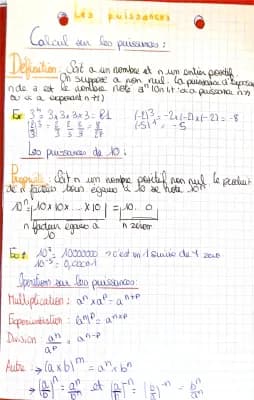 Les puissances
Calcul sur les puissances :
Définition : Soit a un nombre et n un entier positif.
On suppose a non nul. La puissance d'exposant
n de a est le nombre noté aⁿ (on lit : a à puissance n)
ou a exposant n)
Ex : 3⁴ = 3 x 3 x 3 x 3 = 81 (-2)³ = -2x(-2)x(-2) = -8
(-5)¹ = -5
Les puissances de 10 :
Propriété : Soit n un nombre positif non nul le produit
de n facteurs tous égaux à 10 se note 10ⁿ
10ⁿ = 10 x 10 x ... x 10 = 10...0
n facteurs égaux à n zéros
10
Ex : 10⁷ = 10000000 → c'est un 1 suivie de 7 zéro
10⁻⁵ = 0,00001
Opération sur les puissances :
Multiplication : aⁿ x aᵖ = aⁿ⁺ᵖ
Exponentiation : (aⁿ)ᵖ = aⁿˣᵖ
Division : aⁿ/aᵖ = aⁿ⁻ᵖ
Autre : → (a x b)ᵐ = aⁿ x bⁿ
→ (a/b)ⁿ = aⁿ/bⁿ et (a/b)⁻ⁿ = (b/a)⁻ⁿ = bⁿ/aⁿ